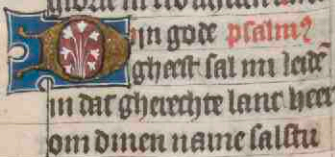 Dijn gode psalm9
gheest sal mi leidē
in dat gherechte lant heer
om dinen name salstu